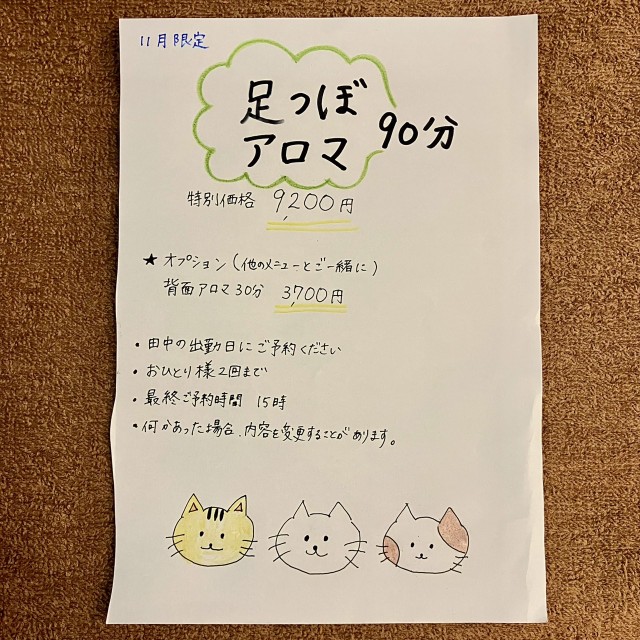 11月限定
足つぼ
アロマ 90分
特別価格 9,200円
★ オプション(他のメニューとご一緒に)
背面アロマ30分 3,700円
・田中の出勤日にご予約ください
・おひとり様2回まで
・最終ご予約時間 15時
・何かあった場合、内容を変更することがあります。